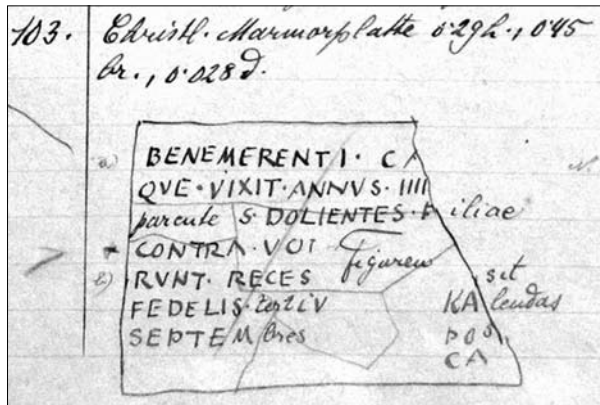 103. Christl. Marmorplatte 0·29 h., 0·45
br., 0·028 d.
a) BENEMERENTI · CA
QVE · VIXIT · ANNVS · IIII
parente S · DOLIENTES · F iliae
CONTRA · VOT Figuren
b) RVNT · RECES sit
FEDELIS · tertiV KA lendas
SEPTEM bres POS
CA